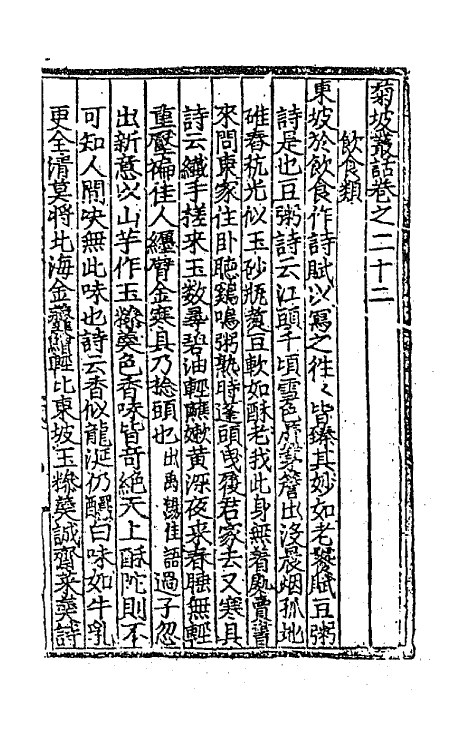 菊坡叢話卷之二十二
飲食類
東坡於飲食作詩賦以寫之往〻皆臻其妙如老饕賦豆粥
詩是也豆粥詩云江頭千頃雪色蘆茅簷出沒晨烟孤地
碓舂秔光似玉砂瓶煑豆軟如酥老我此身無着處賣書
來問東家住卧聽鷄鳴粥熟時蓬頭曵履君家去又寒具
詩云纖手搓來玉數尋碧油輕蘸嫩黄深夜來春睡無輕
重壓褊佳人纒臂金寒具乃捻頭也出禹錫佳話過子忽
出新意以山芋作玉糝羹色香味皆竒絶天上酥陀則不
可知人間决無此味也詩云香似龍涎仍釅白味如牛乳
更全清莫將北海金虀鱠輕比東坡玉糝羹誠齋菜羹詩